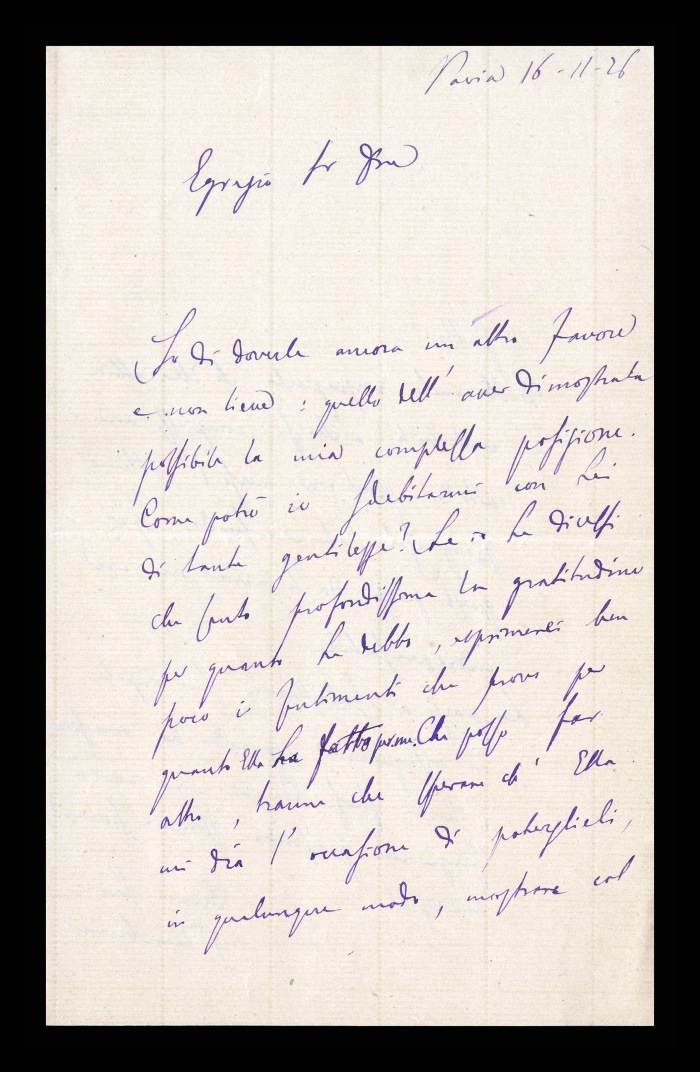 Pavia 16-11-26
Egregio Sr
So di doverle ancora un altro favore
e non lieve : quello dell' aver dimostrata
possibile la mia complessa posizione.
Come potrò io sdebitarmi con Lei
di tante gentilezze? Se io Le dicessi
che sento profondissima la gratitudine
per quanto Le debbo, esprimerei ben
poco i sentimenti che provo per
quanto Ella ha fatto per me. Che posso far
altro, tranne che sperare ch' Ella
mi dia l' occasione di poterglieli,
in qualunque modo, mostrare col